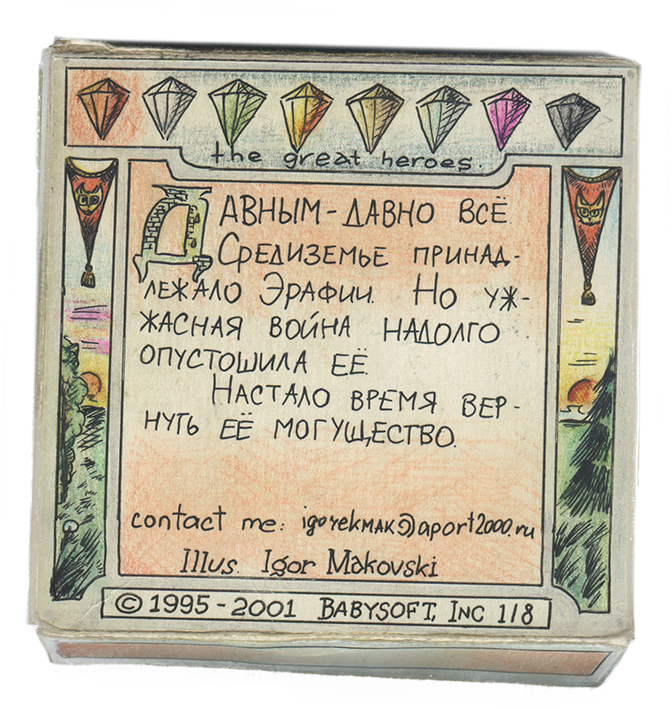 the great heroes.
ДАВНЫМ-ДАВНО ВСЁ
СРЕДИЗЕМЬЕ ПРИНАД-
ЛЕЖАЛО ЭРАФИИ. НО УЖ-
ЖАСНАЯ ВОЙНА НАДОЛГО
ОПУСТОШИЛА ЕЁ.
НАСТАЛО ВРЕМЯ ВЕР-
НУТЬ ЕЁ МОГУЩЕСТВО.
contact me: igorekmak@aport2000.ru
Illus. Igor Makovski
© 1995-2001 BABYSOFT, INC 1/8